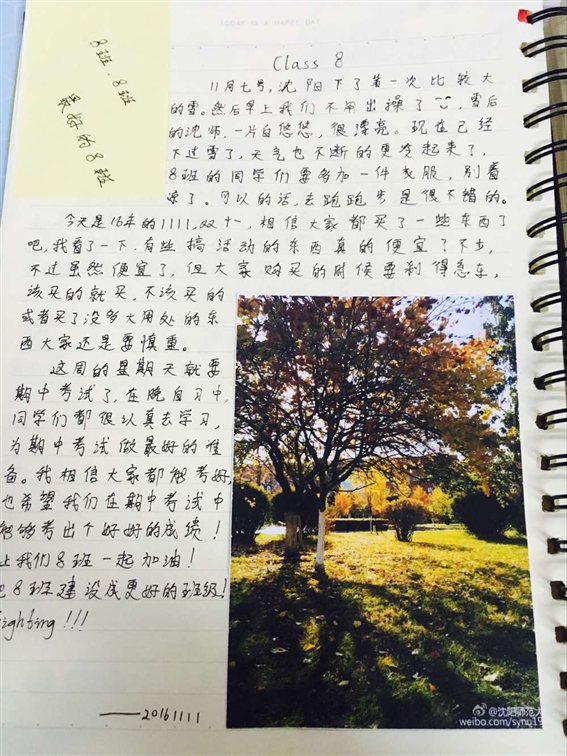 TODAY IS A HAPPY DAY
8班、8班
最好的8班
Class 8
11月七号,沈阳下了着一次比较大
的雪。然后早上我们不用出操了~,雪后
的沈师,一片白悠悠,很漂亮。现在已经
下过雪了,天气也不断的更冷起来了,
8班的同学们要多加一件衣服,别着
凉了。可以的话,去跑跑步是很不错的。
今天是16年的1111,双十一,相信大家都买了一些东西了
吧,我看了一下,有些搞活动的东西真的便宜了不少,
不过虽然便宜了,但大家购买的时候要刹得急车,
该买的就买,不该买的
或者买了没多大用处的东
西大家还是要慎重。
这周的星期天就要
期中考试了,在晚自习中,
同学们都很认真去学习,
为期中考试做最好的准
备。我相信大家都能考好,
也希望我们在期中考试中
能够考出个好好的成绩!
上我们8班一起加油!
把8班建设成更好的班级!
ighting!!!
——20161111
@沈阳师范大
weibo.com/synu19